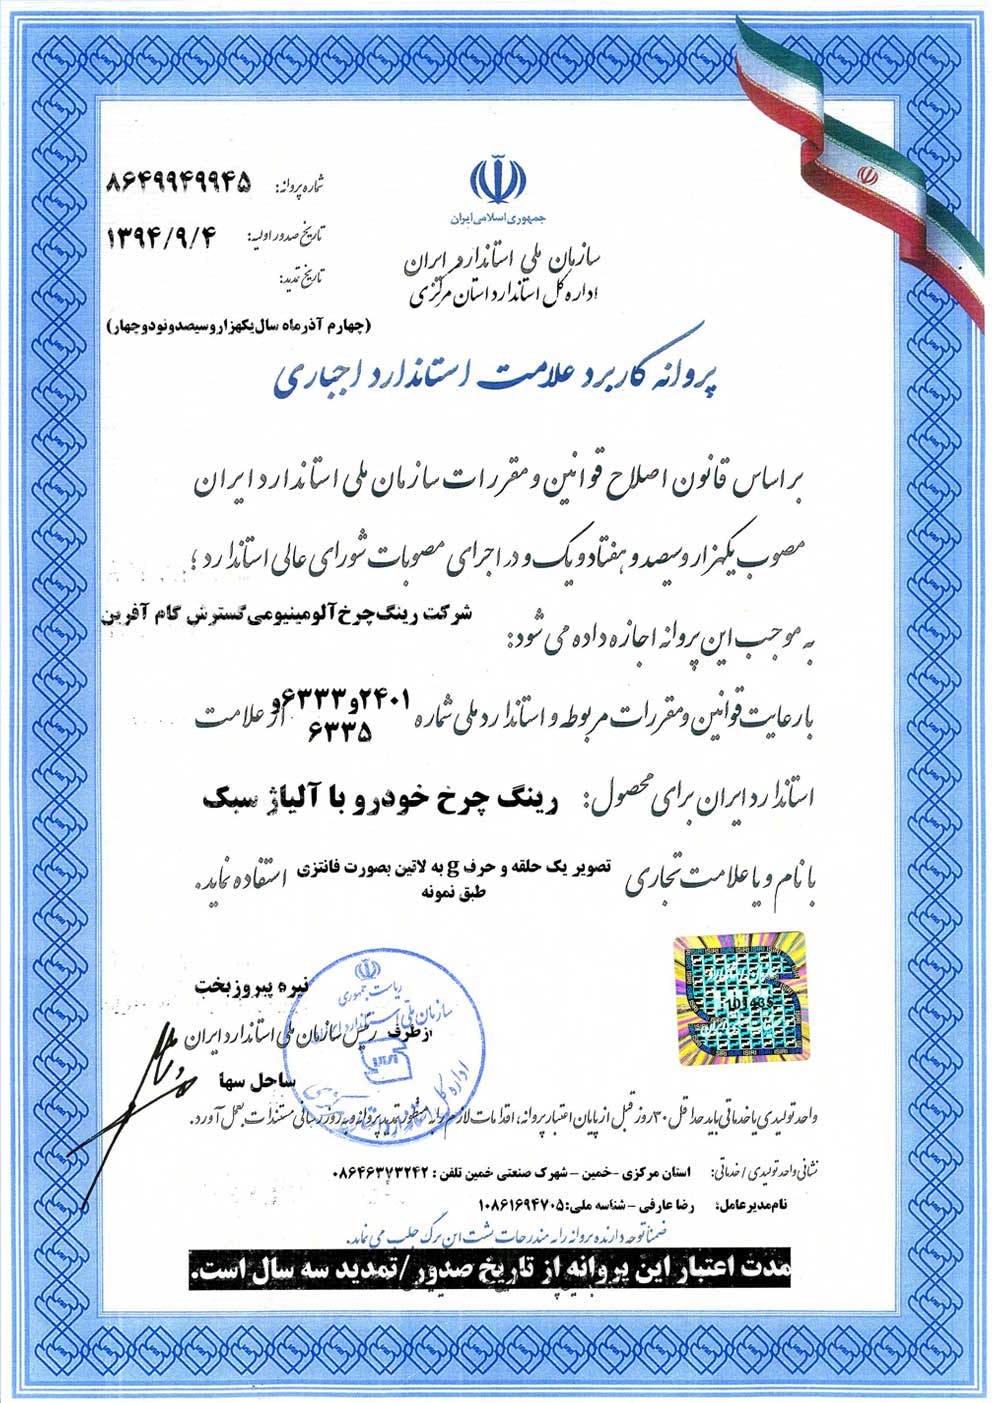 جمهوری اسلامی ایران
سازمان ملی استاندارد ایران
اداره کل استاندارد استان مرکزی
شماره پروانه: ۸۶۴۹۹۴۹۹۴۵
تاریخ صدور اولیه: ۱۳۹۴/۹/۴
تاریخ تمدید:
(چهارم آذرماه سال یکهزاروسیصدونودوچهار)
پروانه کاربرد علامت استاندارد اجباری
بر اساس قانون اصلاح قوانین و مقررات سازمان ملی استاندارد ایران
مصوب یکهزار و سیصد و هفتاد و یک و در اجرای مصوبات شورای عالی استاندارد ؛
به موجب این پروانه اجازه داده می شود: شرکت رینگ چرخ آلومینیومی گسترش گام آفرین
با رعایت قوانین و مقررات مربوطه و استاندارد ملی شماره ۲۴۰۱و۶۳۳۳و
۶۳۳۵ از علامت
استاندارد ایران برای محصول: رینگ چرخ خودرو با آلیاژ سبک
با نام و یا علامت تجاری تصویر یک حلقه و حرف g به لاتین بصورت فانتزی
طبق نمونه استفاده نماید.
نیره پیروزبخت
رئیس سازمان ملی استاندارد ایران
ازطرف
ساحل سها
ریاست جمهوری
سازمان ملی استاندارد ایران
اداره کل
واحد تولیدی یا خدماتی باید حداقل ۳۰ روز قبل از پایان اعتبار پروانه، اقدامات لازم را به منظور تمدید پروانه و به روز رسانی مستندات بعمل آورد.
نشانی واحد تولیدی / خدماتی: استان مرکزی -خمین - شهرک صنعتی خمین تلفن : ۰۸۶۴۶۳۷۳۲۴۲
نام مدیر عامل: رضا عارفی - شناسه ملی: ۱۰۸۶۱۶۹۴۷۰۵
ضمناً توجه دارنده پروانه را به مندرجات پشت این برگ جلب می نماید.
مدت اعتبار این پروانه از تاریخ صدور /تمدید سه سال است.